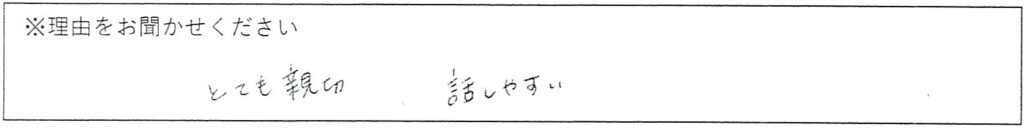 ※理由をお聞かせください
とても親切　話しやすい